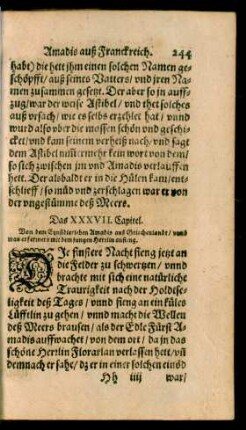 Amadis auß Franckreich. 244
habt) die hett jhm einen solchen Namen ge-
schöpfft/ auß seines Vatters/ vnd jren Na-
men zusammen gesetzt. Der aber so jn auff-
zug/ war der weise Astibel/ vnd thet solches
auß vrsach/ wie es selbs erzehlet hat / vnnd
wurd also vber die massen schön vnd geschi-
cket/ vnd kam seinem verheiß nach/ vnd sagt
dem Astibel nim̃ermehr kein wort von dem/
so sich zwischen jm vnd Amadis verlauffen
hett. Der alsbaldt er in die Hülen kam/ ent-
schlieff / so müd vnd zerschlagen war er von
der vngestümme deß Meers.
Das XXXVII. Capitel.
Von dem Amadis auß Griechenlandt / vnnd
was er ferrner mit dem jungen Herrlin anfieng.
DIe finstere Nacht fieng jetzt an
die Felder zu schwertzen / vnnd
bracht mit sich eine natürliche
Traurigkeit nach der Holdse-
ligkeit deß Tages / vnnd fieng an ein küles
Lüfftlin zu gehen / vnnd macht die Wellen
deß Meers brausen/ als der Edle Fürst A-
madis auffwachet / von dem ort / da jn das
schöne Herrlin Florarlan verlassen hett/ vñ
demnach er sahe/ dz er in einer solchen einöd
Hh iiij war/